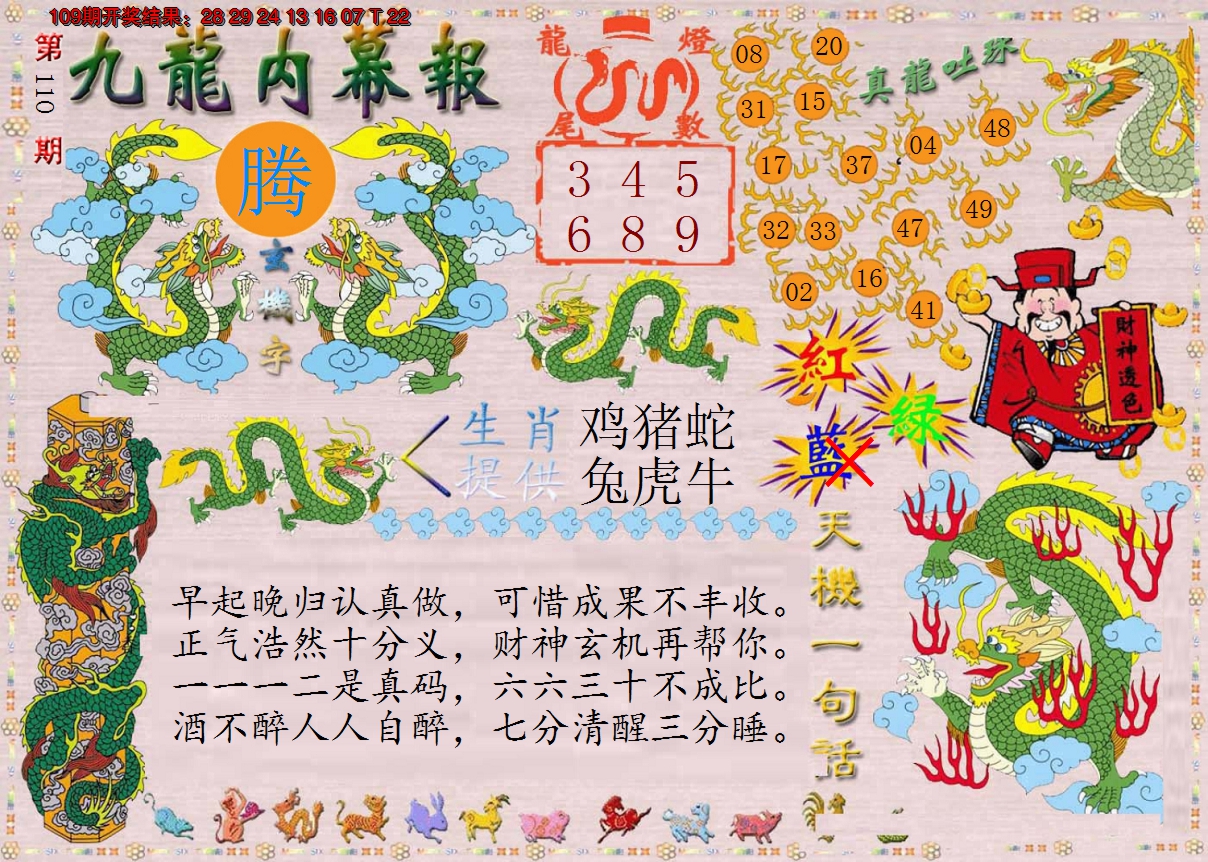 109期开奖结果：28 29 24 13 16 07 T 22
第110期
九龍内幕報
龍燈尾數
3 4 5
6 8 9
08 20
31 15
17 37 04 48
32 33 47 49
02 16 41
真龍吐珠
腾
玄機字
財神透色
紅
綠
藍
生肖提供
鸡猪蛇
兔虎牛
天機一句話
早起晚归认真做，可惜成果不丰收。
正气浩然十分义，财神玄机再帮你。
一一一二是真码，六六三十不成比。
酒不醉人人自醉，七分清醒三分睡。